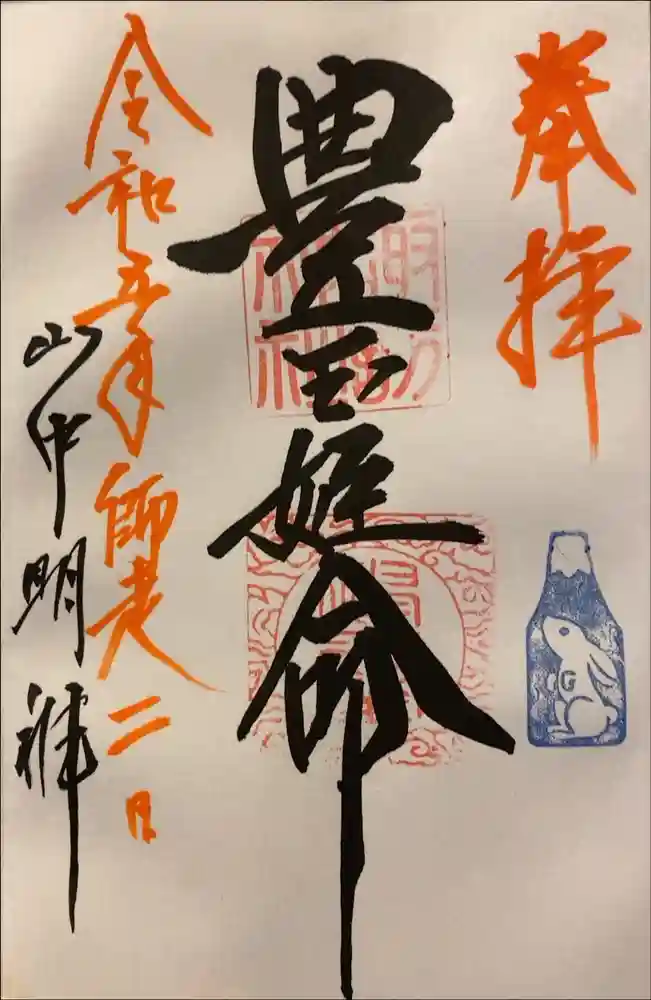 奉拝
豊玉姫命
令和五年師走二日
山中明神